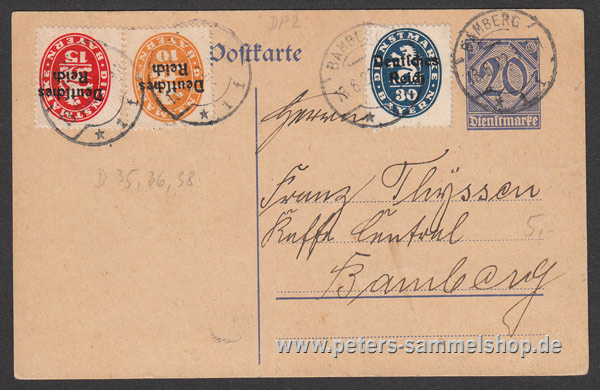 DP2
Postkarte
15
DIENSTMARKE BAYERN
Deutsches
Reich
10
DIENSTMARKE BAYERN
Deutsches
Reich
DIENSTMARKE BAYERN
Deutsches
Reich
30
BAMBERG
BAMBERG
20
Dienstmarke
D 35, 36, 38.
Herrn
Franz Thyssen
Kaffe Central
Bamberg
5,-
www.peters-sammelshop.de